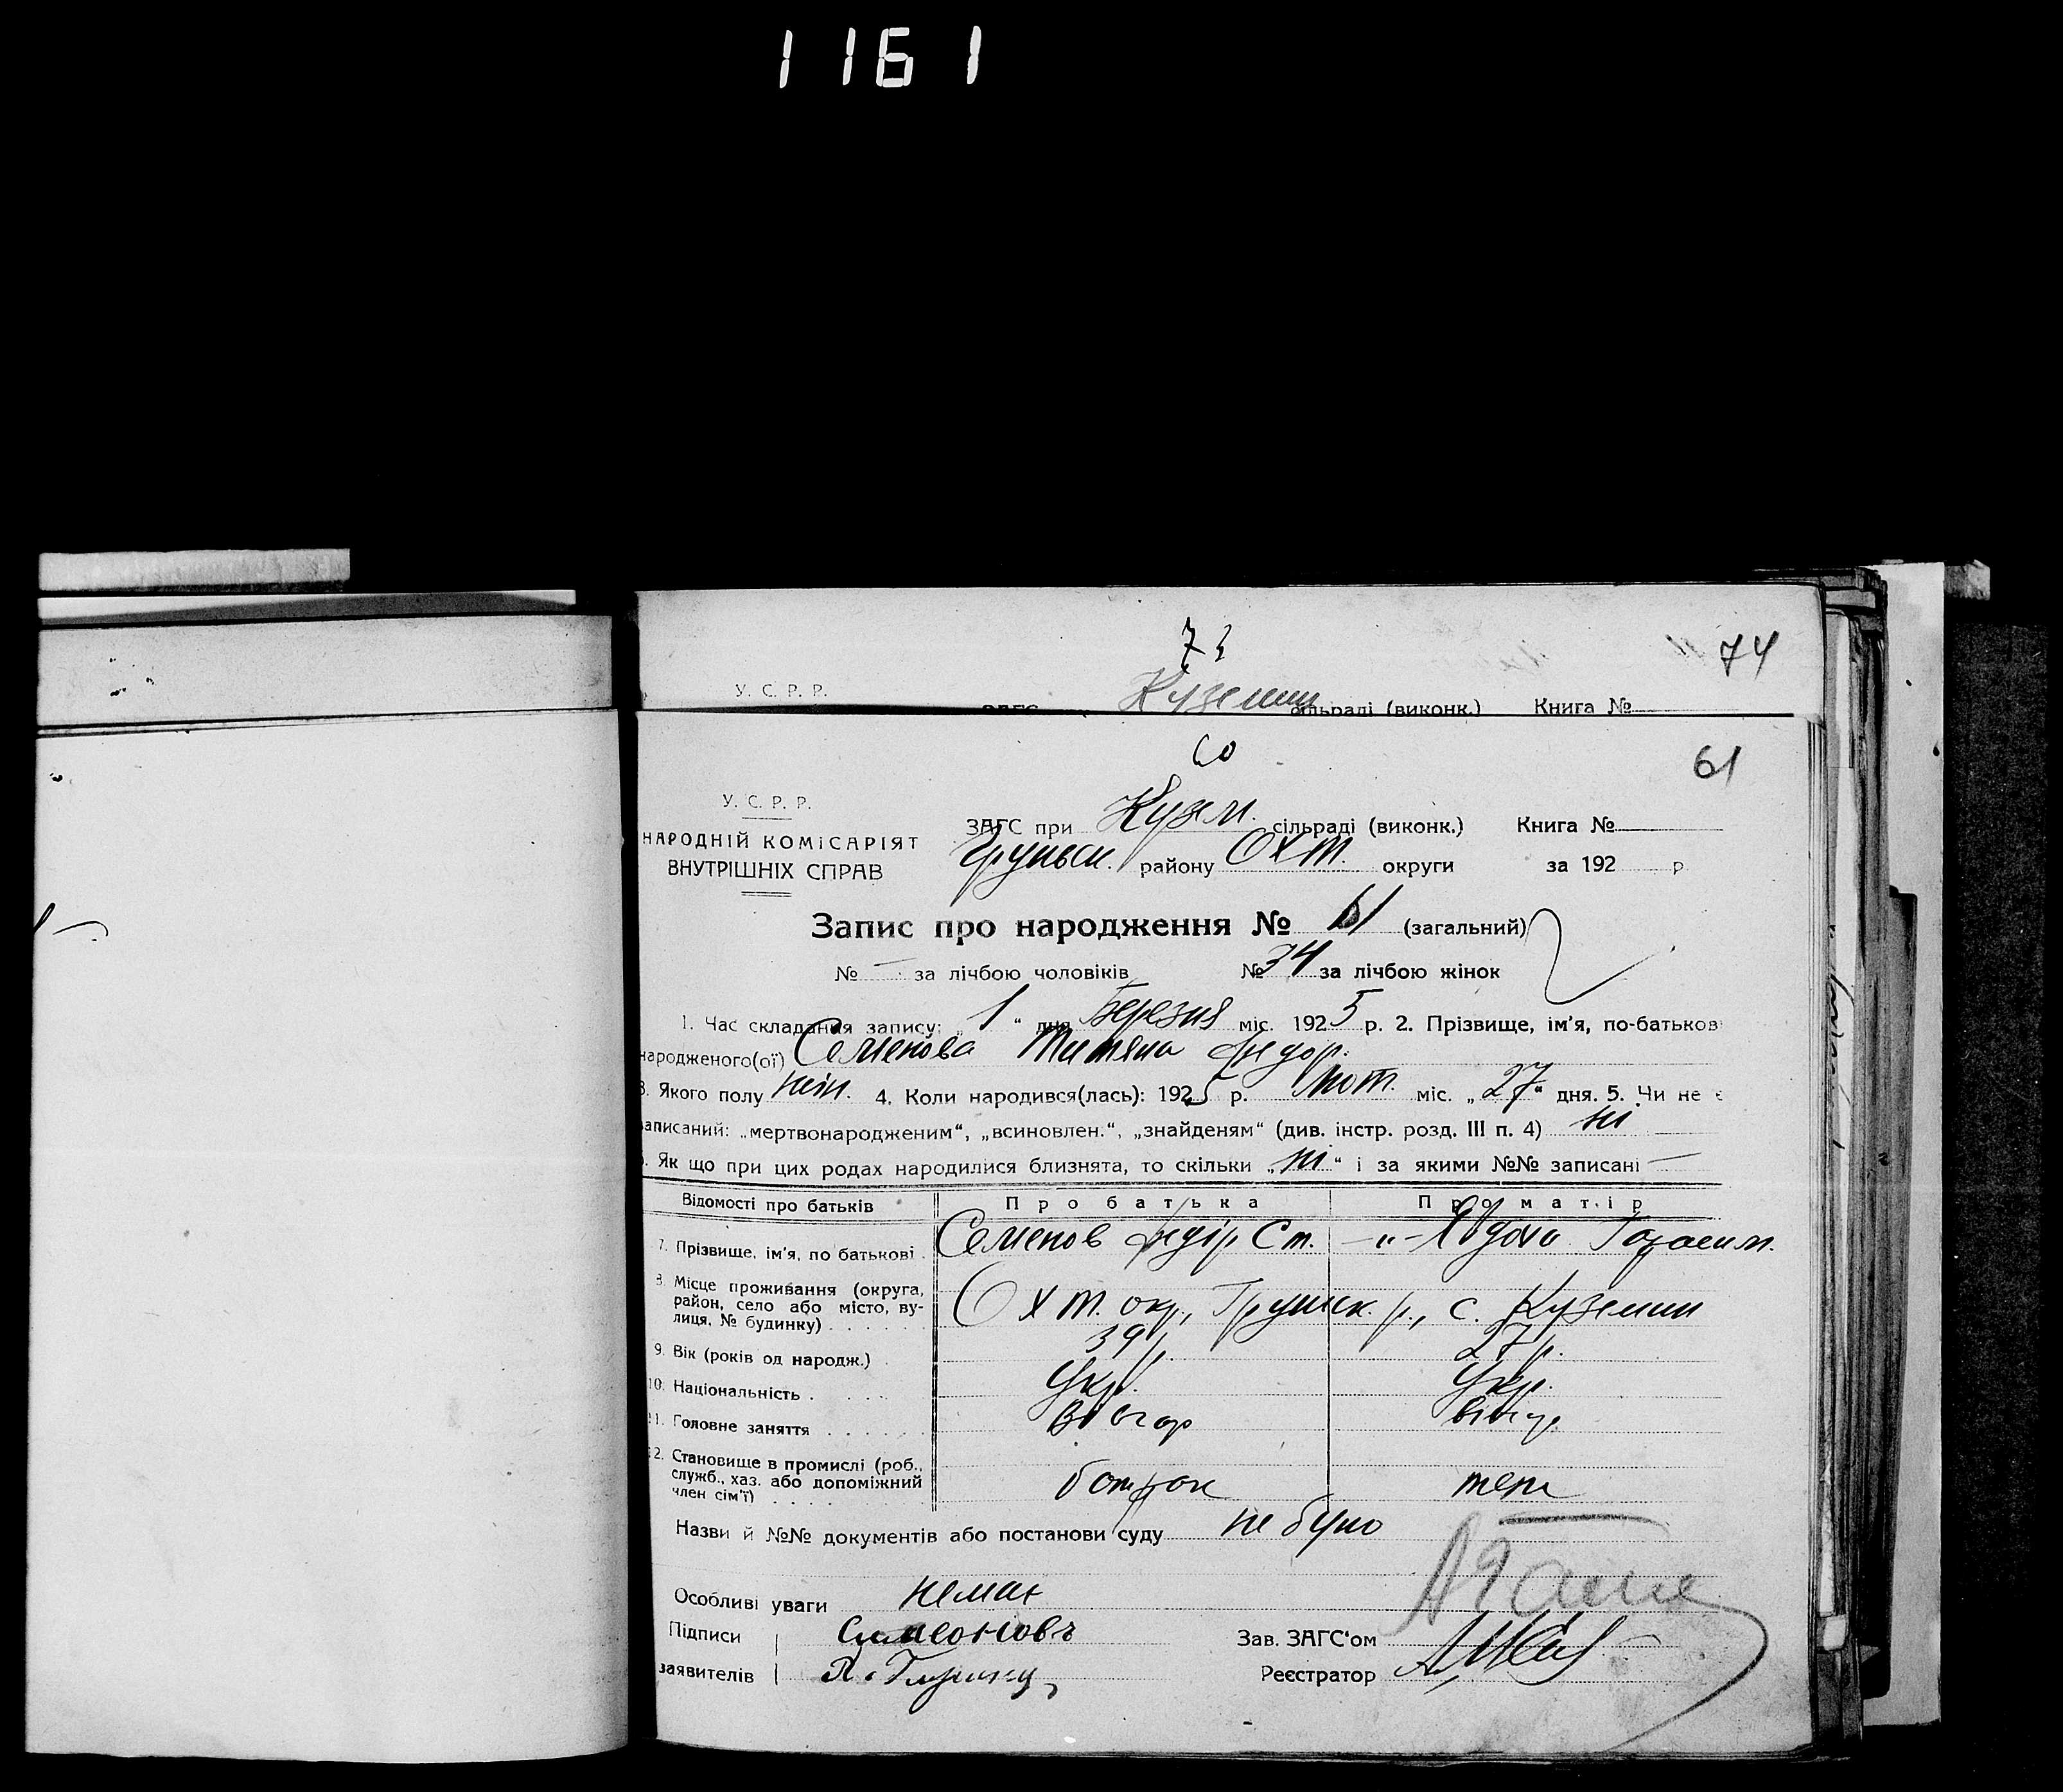 1161
73
74
У. С. Р. Р.
Куземин сільраді (виконк.) Книга №
60
61
У. С. Р. Р.
НАРОДНІЙ КОМІСАРІЯТ
ВНУТРІШНІХ СПРАВ
ЗАГС при Кузем. сільраді (виконк.) Книга №
Груньськ. району Охт. округи за 192 р
Запис про народження № 61 (загальний)
№ — за лічбою чоловіків № 34 за лічбою жінок
1. Час складання запису: „ 1 “ дня Березня міс. 1925 р. 2. Прізвище, ім'я, по-батьков
народженого(ої) Семенова Титяна Федор.
3. Якого полу жін. 4. Коли народився(лась): 1925 р. Лют. міс. „27“ дня. 5. Чи не є
записаний: „мертвонародженим“, „всиновлен.“, „знайденям“ (див. інстр. розд. III п. 4) ні
. Як що при цих родах народилися близнята, то скільки „ні“ і за якими №№ записані —
Відомості про батьків Про батька Про матір
7. Прізвище, ім'я, по батькові . Семенов Федір Ст. —„— Явдоха Гарасим.
8. Місце проживання (округа,
район, село або місто, ву-
лиця, № будинку) . . . . . Охт. окр., Груньск. р., с. Куземин
9. Вік (років од народж.) . 39 р. 27 р.
10. Національність . . . . . Укр. Укр.
11. Головне заняття . . . . . .
12. Становище в промислі (роб.,
служб., хаз. або допоміжний
член сім'ї) . . . . . батрак
Назви й №№ документів або постанови суду не було
Особливі уваги немає
Підписи Симеоновъ Зав. ЗАГС'ом
заявителів Реєстратор